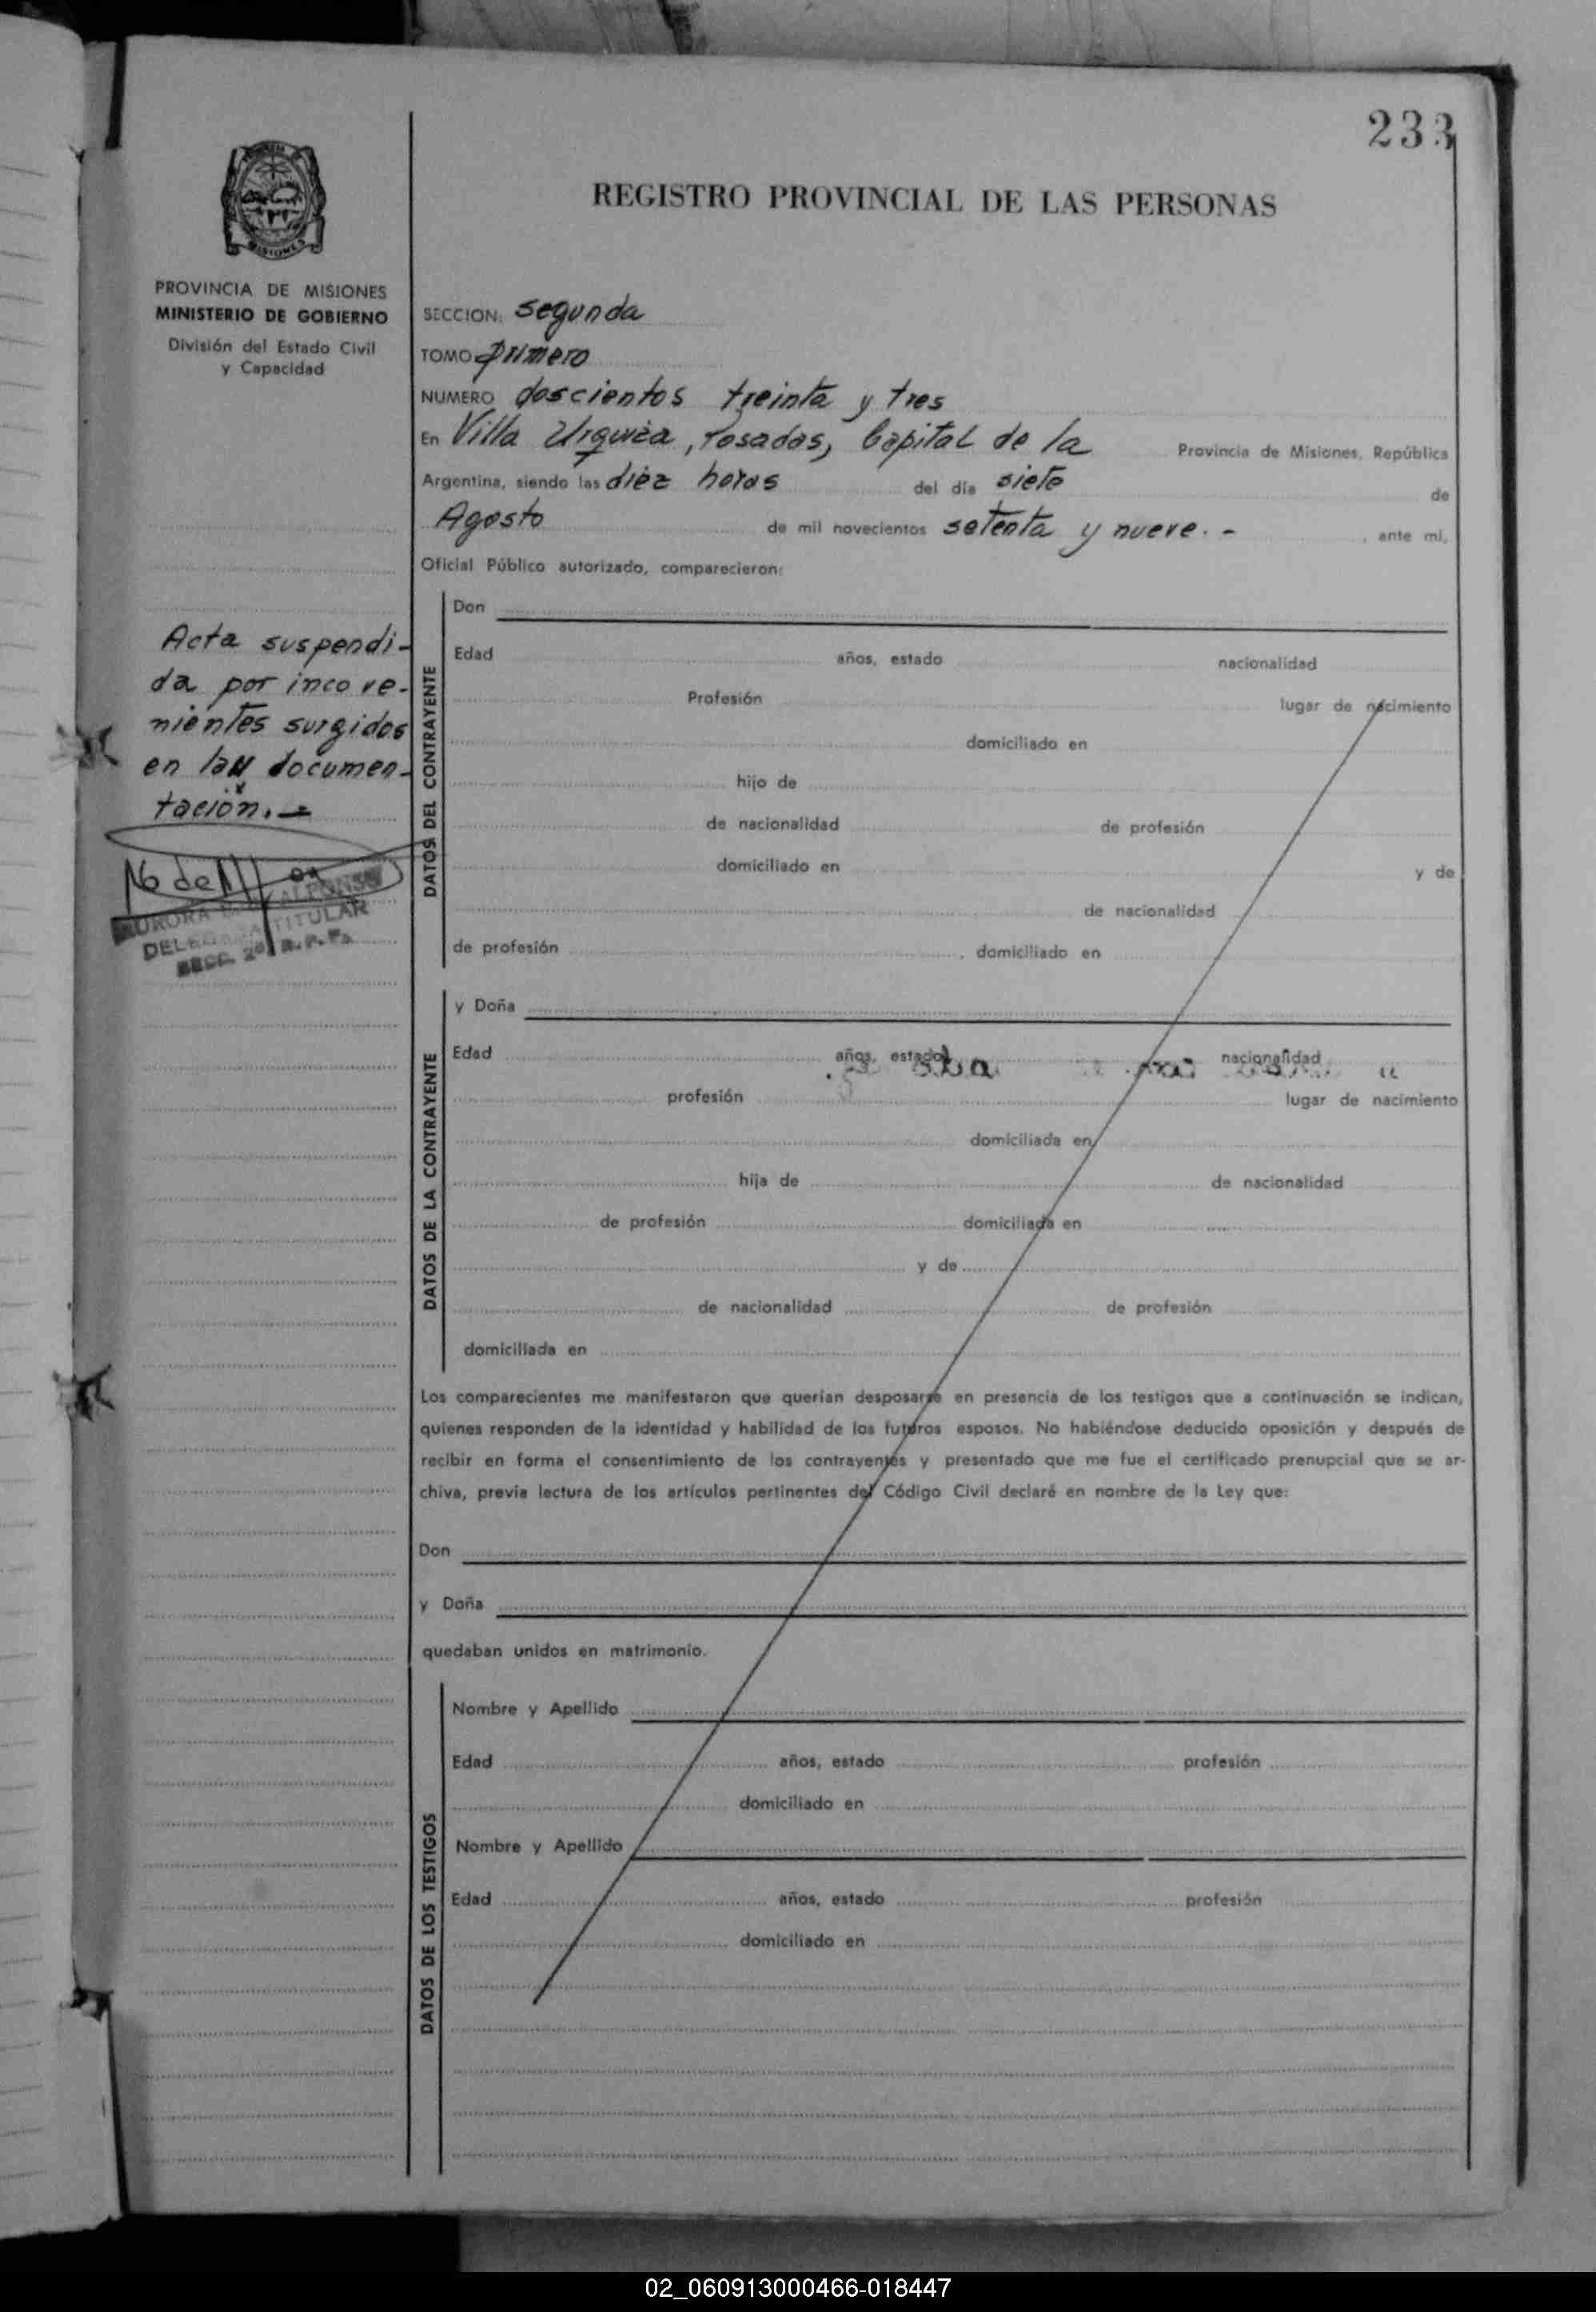 233
REGISTRO PROVINCIAL DE LAS PERSONAS
MISIONES
PROVINCIA DE MISIONES
MINISTERIO DE GOBIERNO
División del Estado Civil
y Capacidad
SECCION: segunda
TOMO primero
NUMERO doscientos treinta y tres
En Villa Urquiza, Posadas, Capital de la Provincia de Misiones, República
Argentina, siendo las diez horas del día siete de
Agosto de mil novecientos setenta y nueve.- , ante mí,
Oficial Público autorizado, comparecieron:
Acta suspendi-
da por inco ve-
nientes surgidos
en la documen-
tación.-
ALFONSO
DELEGADA TITULAR
SECC. 2º R. P. P.
DATOS DEL CONTRAYENTE
Don
Edad años, estado nacionalidad
Profesión lugar de nacimiento
domiciliado en
hijo de
de nacionalidad de profesión
domiciliado en y de
de nacionalidad
de profesión , domiciliado en
DATOS DE LA CONTRAYENTE
y Doña
Edad años, estado nacionalidad
profesión lugar de nacimiento
domiciliada en
hija de de nacionalidad
de profesión domiciliada en
y de
de nacionalidad de profesión
domiciliada en
Los comparecientes me manifestaron que querían desposarse en presencia de los testigos que a continuación se indican,
quienes responden de la identidad y habilidad de los futuros esposos. No habiéndose deducido oposición y después de
recibir en forma el consentimiento de los contrayentes y presentado que me fue el certificado prenupcial que se ar-
chiva, previa lectura de los artículos pertinentes del Código Civil declaré en nombre de la Ley que:
Don
y Doña
quedaban unidos en matrimonio.
DATOS DE LOS TESTIGOS
Nombre y Apellido
Edad años, estado profesión
domiciliado en
Nombre y Apellido
Edad años, estado profesión
domiciliado en
02_060913000466-018447